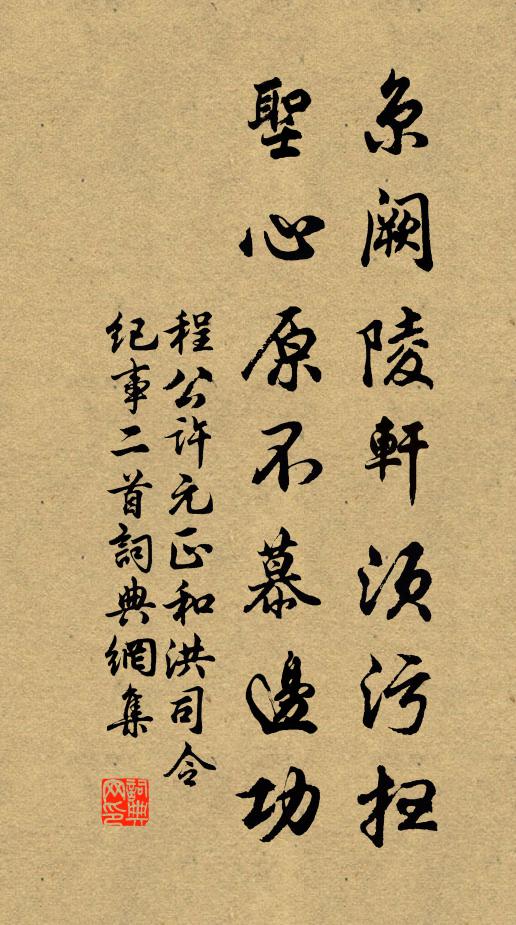 京闕陵軒須污扫
聖心原不慕邊功
程公許元正和洪司令
紀事二首詞典網集
詞典网印